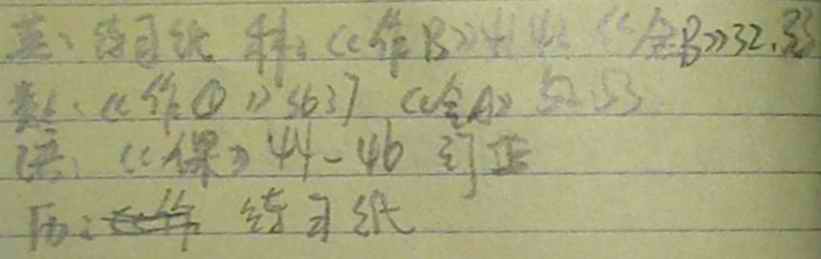 英：练习纸 科：《作B》41 42 《全B》32.33
数：《作①》3637 《全A》52.53
语：《课》44-46 订正
历：练习纸